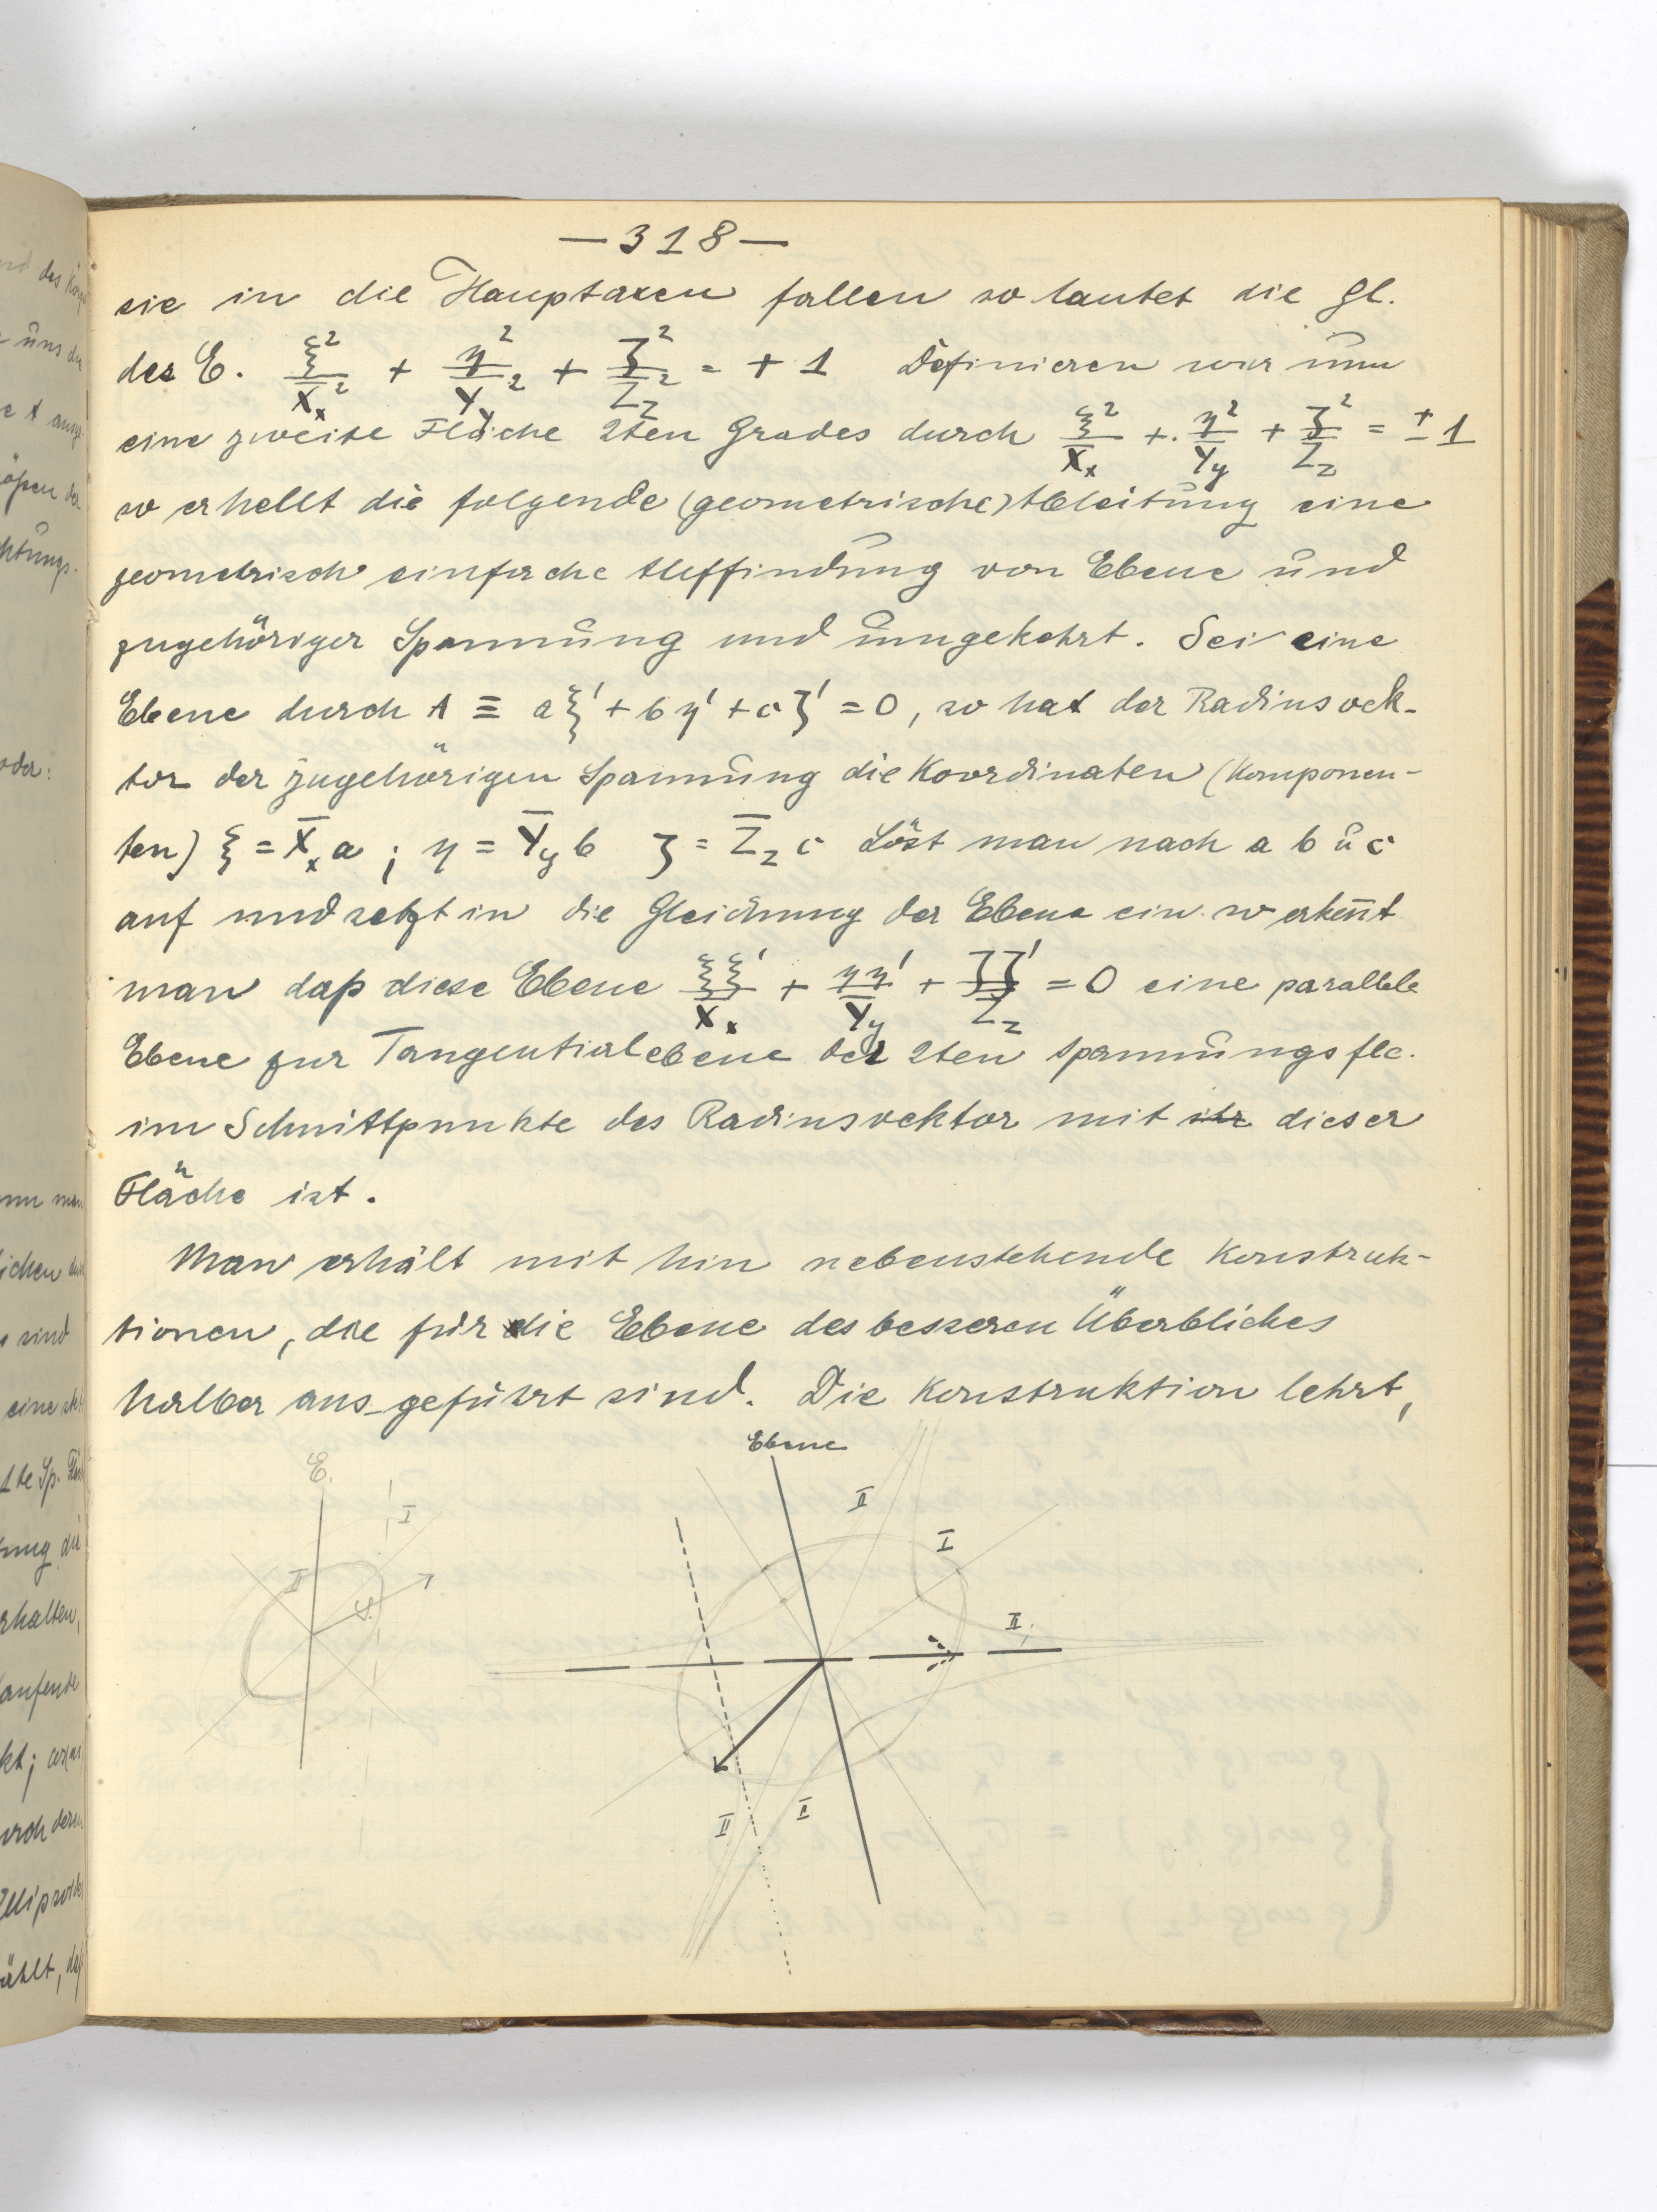 — 318 —
sie in die Hauptaxen fallen so lautet die Gl.
des E. ξ²/X̄ₓ² + η²/Ȳy² + ζ²/Z̄z² = + 1 Definieren wir nun
eine zweite Fläche 2ten Grades durch ξ²/X̄ₓ +. η²/Ȳy + ζ²/Z̄z = ± 1
so erhellt die folgende (geometrische) Ableitung eine
geometrisch einfache Auffindung von Ebene und
zugehöriger Spannung und umgekehrt. Sei eine
Ebene durch A ≡ aξ' + bη' + cζ' = 0, so hat der Radiusvek-
tor der zugehörigen Spannung die Koordinaten (Komponen-
ten) ξ = X̄ₓ a ; η = Ȳy b ζ = Z̄z c Löst man nach a b u c
auf und setzt in die Gleichung der Ebene ein so erken̄t
man daß diese Ebene ξξ'/X̄ₓ + ηη'/Ȳy + ζζ'/Z̄z = 0 eine parallele
Ebene zur Tangentialebene der 2ten Spannungsfle.
im Schnittpunkte des Radiusvektor mit ihr dieser
Fläche ist.
Man erhält mit hin nebenstehende Konstruk-
tionen, die für die Ebene des besseren Überbliches
halber aus-geführt sind. Die Konstruktion lehrt,
Ebene
E.
I
II
II
I
II
II
I